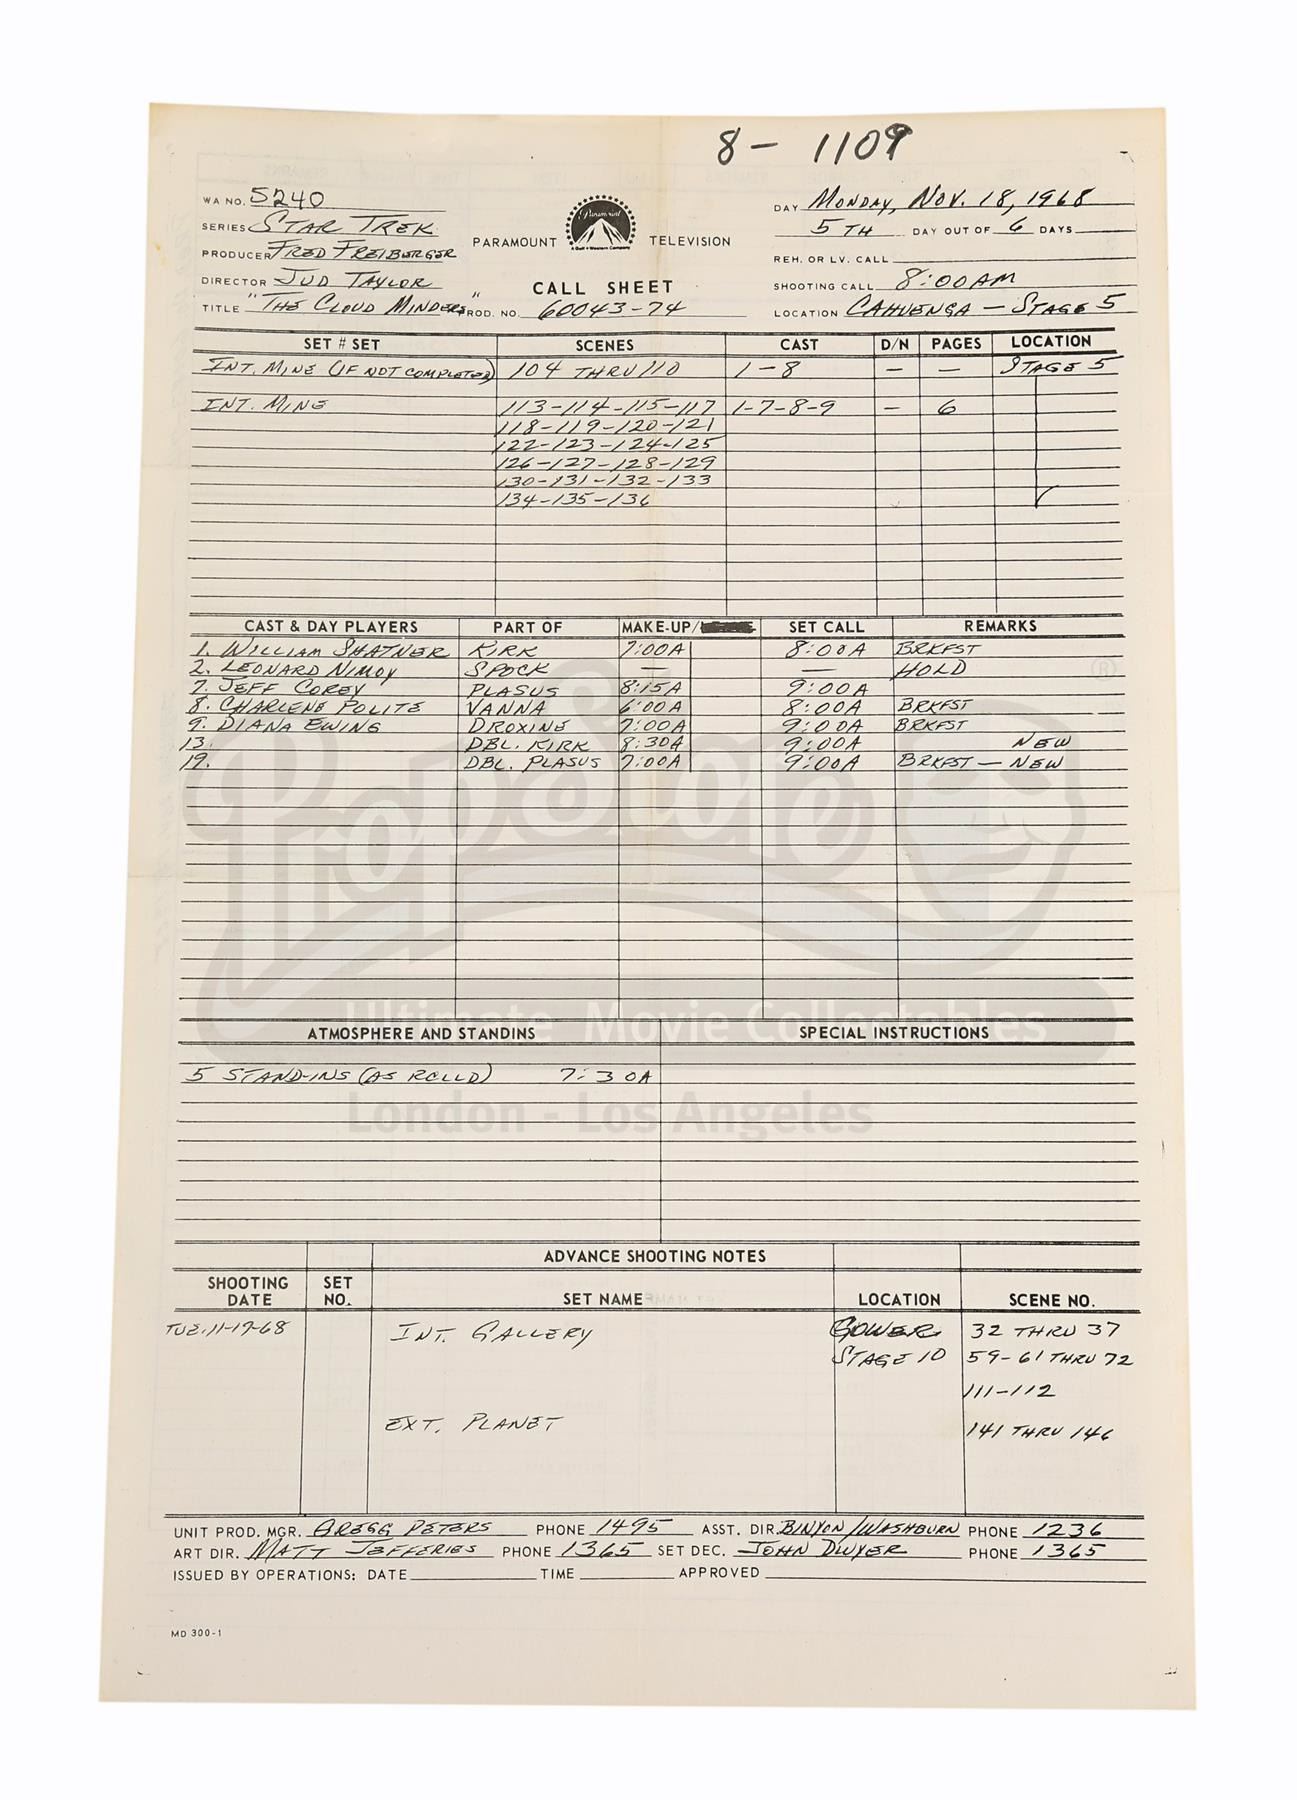 8 - 1109
WA NO. 5240
SERIES STAR TREK
PRODUCER FRED FREIBERGER
DIRECTOR JUD TAYLOR
TITLE "THE CLOUD MINDERS"
Paramount
A Gulf + Western Company
PARAMOUNT TELEVISION
CALL SHEET
PROD. NO. 60043-74
DAY MONDAY, NOV. 18, 1968
5TH DAY OUT OF 6 DAYS
REH. OR LV. CALL
SHOOTING CALL 8:00AM
LOCATION CAHUENGA - STAGE 5
SET # SET SCENES CAST D/N PAGES LOCATION
INT. MINE (IF NOT COMPLETED) 104 THRU 110 1-8 — — STAGE 5
INT. MINE 113-114-115-117 1-7-8-9 — 6
118-119-120-121
122-123-124-125
126-127-128-129
130-131-132-133
134-135-136
CAST & DAY PLAYERS PART OF MAKE-UP/ SET CALL REMARKS
1. WILLIAM SHATNER KIRK 7:00A 8:00A BRKFST
2. LEONARD NIMOY SPOCK — — HOLD
7. JEFF COREY PLASUS 8:15A 9:00A
8. CHARLENE POLITE VANNA 6:00A 8:00A BRKFST
9. DIANA EWING DROXINE 7:00A 9:00A BRKFST
13. DBL. KIRK 8:30A 9:00A NEW
19. DBL. PLASUS 7:00A 9:00A BRKFST - NEW
PropStore ®
Ultimate Movie Collectables
ATMOSPHERE AND STANDINS SPECIAL INSTRUCTIONS
5 STAND-INS (AS ROLLD) 7:30A
London - Los Angeles
ADVANCE SHOOTING NOTES
SHOOTING DATE SET NO. SET NAME LOCATION SCENE NO.
TUE. 11-19-68 INT. GALLERY GOWER 32 THRU 37
STAGE 10 59-61 THRU 72
111-112
EXT. PLANET 141 THRU 146
UNIT PROD. MGR. GREGG PETERS PHONE 1495 ASST. DIR. BINYON/WASHBURN PHONE 1236
ART DIR. MATT JEFFERIES PHONE 1365 SET DEC. JOHN DWYER PHONE 1365
ISSUED BY OPERATIONS: DATE TIME APPROVED
MD 300-1